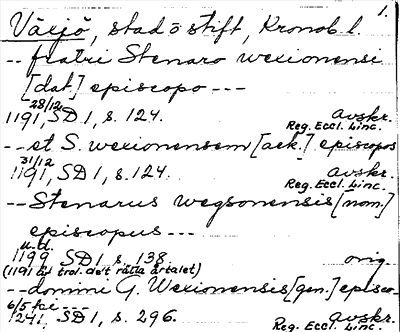 1.
Växjö, stad o stift, Kronob. l.
-- fratri Stenaro wexionensi
[dat.] episcopo ---
28/12
1191, SD 1, s. 124. avskr.
Reg. Eccl. Linc.
-- et S. wexionensem [ack.] episcopos
31/12
1191, SD 1, s. 124. avskr.
Reg. Eccl. Linc.
-- Stenarus wegsonensis [nom.]
episcopus ---
u.d.
1199 SD 1, s. 138 orig.
(1191 är trol. det rätta årtalet)
-- domini G. Wexionensis [gen.] episco-
6/5 pi ---
1241, SD 1, s. 296. avskr.
Reg. Eccl. Linc.